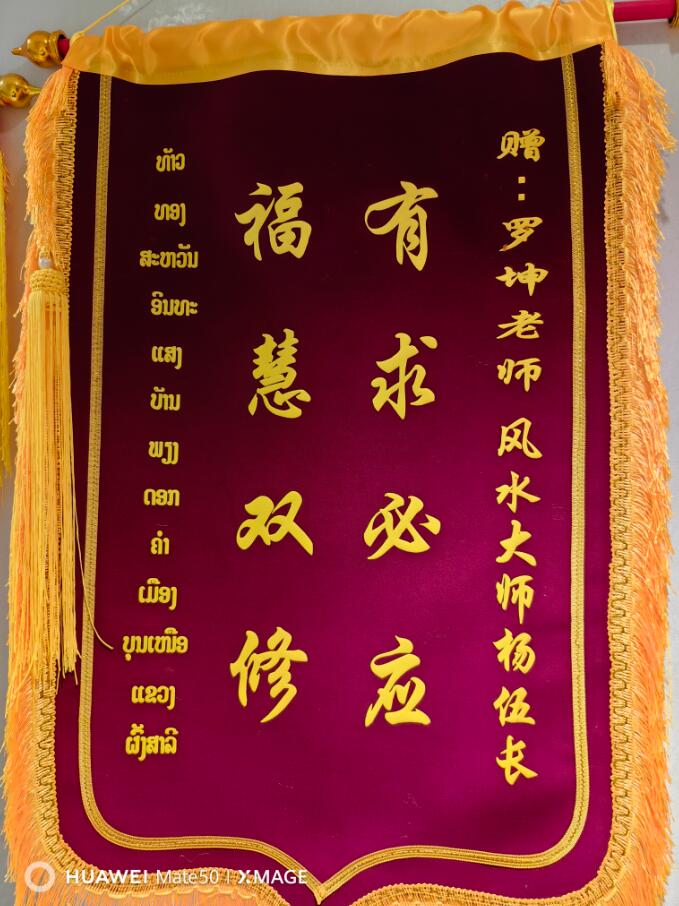 赠：罗坤老师 风水大师杨伍长
有求必应
福慧双修
ທ້າວ
ທອງ
ສະຫວັນ
ອິນທະ
ແສງ
ບ້ານ
ພຽງ
ດອກ
ຄຳ
ເມືອງ
ບຸນເໜືອ
ແຂວງ
ຜົ້ງສາລີ
HUAWEI Mate50 | XMAGE